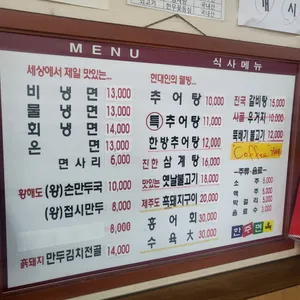 MENU
식사메뉴
세상에서 제일 맛있는...
비냉면 13,000
물냉면 13,000
회냉면 14,000
온면 13,000
면사리 6,000
황해도 (왕)손만두국 10,000
(왕)접시만두 8,000
8,000
흙돼지 만두김치전골 14,000
현대인의 웰빙...
추어탕 10,000
특 추어탕 11,000
한방추어탕 12,000
진한 삼계탕 16,000
맛있는 옛날불고기 18,000
제주도 흑돼지구이 20,000
홍어회 30,000
수육大 30,000
전국 갈비탕 15,000
사골 우거지 10,000
뚝배기불고기 12,000
Coffee
~주류·음료~
소주 5,000
맥주 5,000
막걸리
음료수
한주면옥